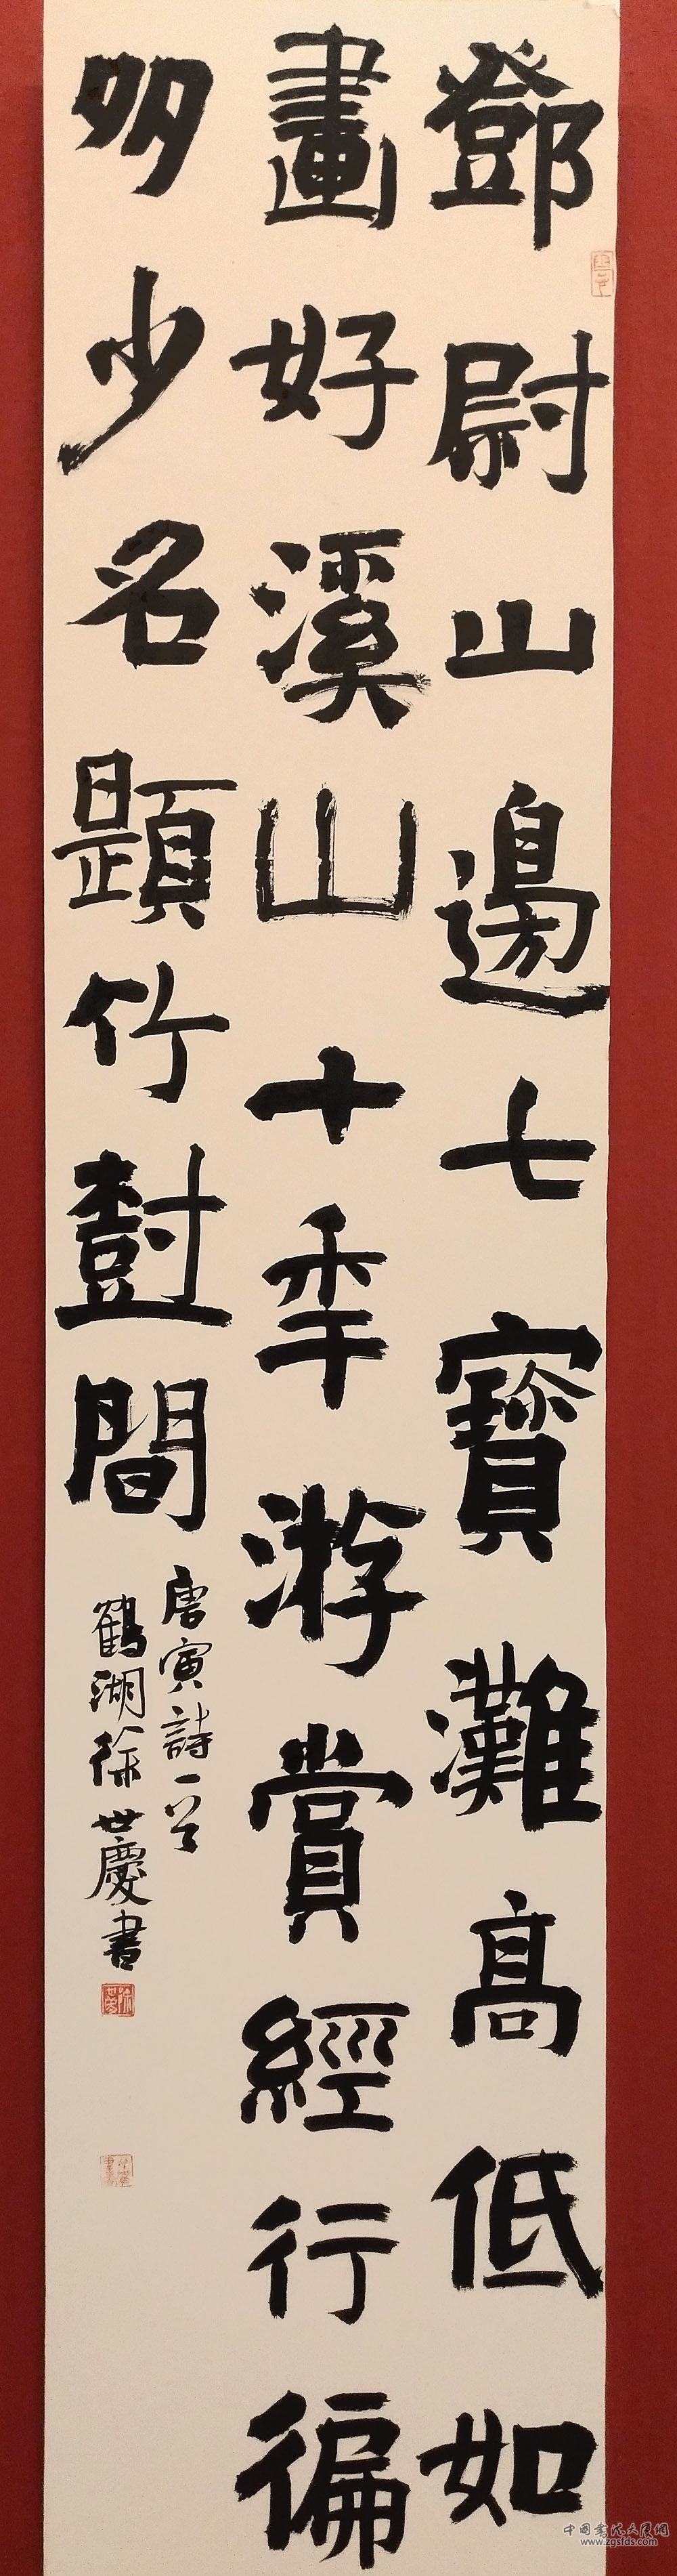 鄧尉山邊七寶灘高低如
畫好溪山十年游賞經行徧
多少名題竹樹間
唐寅詩一首
鶴湖徐世慶書
中国书法大展网
www.zgsfds.com